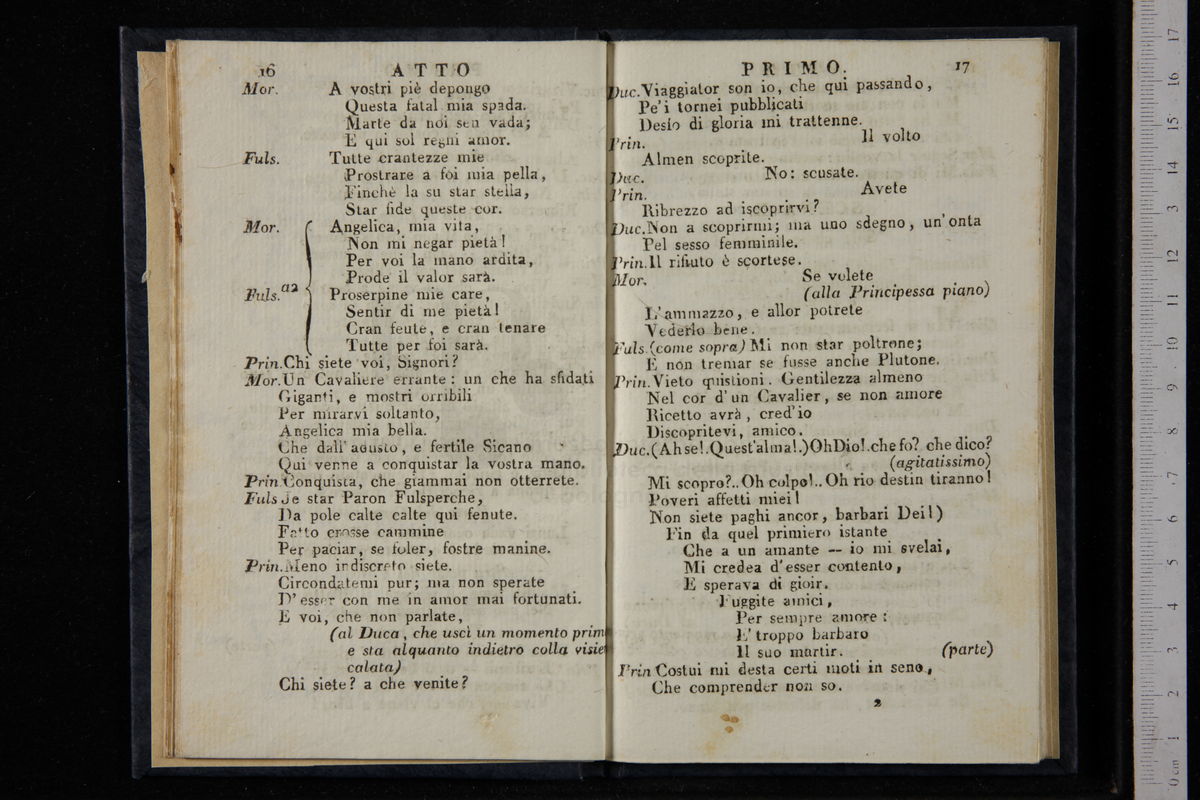 16 ATTO
Mor. A vostri piè depongo
Questa fatal mia spada.
Marte da noi sen vada;
E qui sol regni amor.
Fuls. Tutte crantezze mie
Prostrare a foi mia pella,
Finchè la su star stella,
Star fide queste cor.
Mor. Angelica, mia vita,
Non mi negar pietà!
Per voi la mano ardita,
Prode il valor sarà.
a2
Fuls. Proserpine mie care,
Sentir di me pietà!
Cran feute, e cran tenare
Tutte per foi sarà.
Prin. Chi siete voi, Signori?
Mor. Un Cavaliere errante: un che ha sfidati
Giganti, e mostri orribili
Per mirarvi soltanto,
Angelica mia bella.
Che dall'adusto, e fertile Sicano
Qui venne a conquistar la vostra mano.
Prin. Conquista, che giammai non otterrete.
Fuls Je star Paron Fulsperche,
Da pole calte calte qui fenute.
Fatto crosse cammine
Per paciar, se foler, fostre manine.
Prin. Meno indiscreto siete.
Circondatemi pur; ma non sperate
D'esser con me in amor mai fortunati.
E voi, che non parlate,
(al Duca, che uscì un momento prim
e sta alquanto indietro colla visie
calata)
Chi siete? a che venite?
PRIMO. 17
Duc. Viaggiator son io, che qui passando,
Pe'i tornei pubblicati
Desio di gloria mi trattenne.
Prin. Il volto
Almen scoprite.
Duc. No: scusate.
Prin. Avete
Ribrezzo ad iscoprirvi?
Duc. Non a scoprirmi; ma uno sdegno, un'onta
Pel sesso femminile.
Prin. Il rifiuto è scortese.
Mor. Se volete
(alla Principessa piano)
L'ammazzo, e allor potrete
Vederlo bene.
Fuls. (come sopra) Mi non star poltrone;
E non tremar se fosse anche Plutone.
Prin. Vieto quistioni. Gentilezza almeno
Nel cor d'un Cavalier, se non amore
Ricetto avrà, cred'io
Discopritevi, amico.
Duc. (Ah se!. Quest'alma!.) Oh Dio!. che fo? che dico?
(agitatissimo)
Mi scopro?.. Oh colpo!.. Oh rio destin tiranno!
Poveri affetti miei!
Non siete paghi ancor, barbari Dei!)
Fin da quel primiero istante
Che a un amante — io mi svelai,
Mi credea d'esser contento,
E sperava di gioir.
Fuggite amici,
Per sempre amore:
E' troppo barbaro
Il suo martir. (parte)
Prin Costui mi desta certi moti in seno,
Che comprender non so.
2
0 cm 1 2 3 4 5 6 7 8 9 10 11 12 13 14 15 16 17